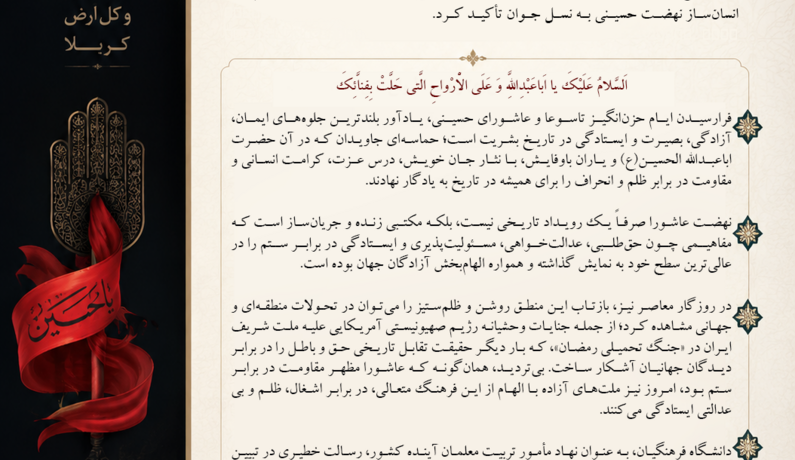 وکل ارض
کربلا
یا حسین
انسان‌ساز نهضت حسینی به نسل جوان تأکید کرد.
اَلسَّلامُ عَلَیْکَ یا اَباعَبْدِاللهِ وَ عَلَی الْاَرْواحِ الَّتی حَلَّتْ بِفِنائِکَ
فرارسیدن ایام حزن‌انگیز تاسوعا و عاشورای حسینی، یادآور بلندترین جلوه‌های ایمان،
آزادگی، بصیرت و ایستادگی در تاریخ بشریت است؛ حماسه‌ای جاویدان که در آن حضرت
اباعبدالله الحسین(ع) و یاران باوفایش، با نثار جان خویش، درس عزت، کرامت انسانی و
مقاومت در برابر ظلم و انحراف را برای همیشه در تاریخ به یادگار نهادند.
نهضت عاشورا صرفاً یک رویداد تاریخی نیست، بلکه مکتبی زنده و جریان‌ساز است که
مفاهیمی چون حق‌طلبی، عدالت‌خواهی، مسئولیت‌پذیری و ایستادگی در برابر ستم را در
عالی‌ترین سطح خود به نمایش گذاشته و همواره الهام‌بخش آزادگان جهان بوده است.
در روزگار معاصر نیز، بازتاب این منطق روشن و ظلم‌ستیز را می‌توان در تحولات منطقه‌ای و
جهانی مشاهده کرد؛ از جمله جنایات وحشیانه رژیم صهیونیستی آمریکایی علیه ملت شریف
ایران در «جنگ تحمیلی رمضان»، که بار دیگر حقیقت تقابل تاریخی حق و باطل را در برابر
دیدگان جهانیان آشکار ساخت. بی‌تردید، همان‌گونه که عاشورا مظهر مقاومت در برابر
ستم بود، امروز نیز ملت‌های آزاده با الهام از این فرهنگ متعالی، در برابر اشغال، ظلم و بی
عدالتی ایستادگی می‌کنند.
دانشگاه فرهنگیان، به عنوان نهاد مأمور تربیت معلمان آینده کشور، رسالت خطیری در تبیین